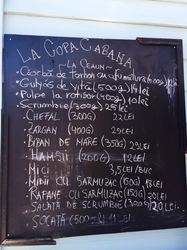 LA GOPA CABANA
~ LA CEAUN ~
Ciorbă de tarhon cu afumătură (400g) 12 lei
Gulyás de vită (500g) 14 lei
Pulpe la rotisor (400g) 10 lei
Scrumbie (300g) 25 lei
CHEFAL (300G) 22 LEI
ZARGAN (400G) 29 LEI
BIBAN DE MARE (350G) 29 LEI
HAMSII (200G) 12 LEI
MICI 3,5 LEI/BUC
MIDII CU SARMUZAC (150G) 18 LEI
RAPANE CU SARMUZAC (150G) LEI
SALATĂ DE SCRUMBIE (300G) 20 LEI
SOCATĂ (500ml) LEI